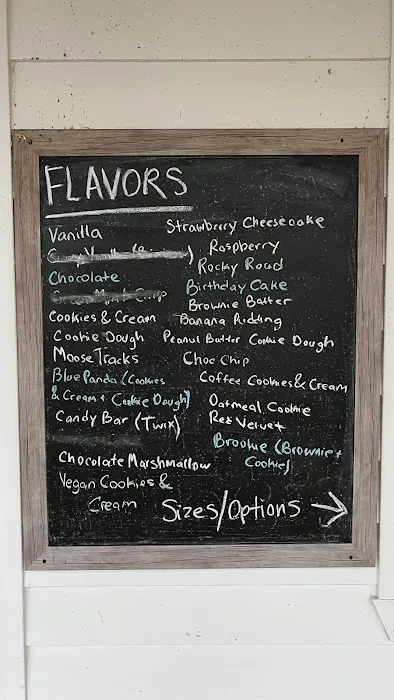 FLAVORS
Vanilla
Chocolate
Cookies & Cream
Cookie Dough
Moose Tracks
Blue Panda (Cookies
& Cream + Cookie Dough)
Candy Bar (Twix)
Chocolate Marshmallow
Vegan Cookies &
Cream
Strawberry Cheesecake
Raspberry
Rocky Road
Birthday Cake
Brownie Batter
Banana Pudding
Peanut Butter Cookie Dough
Choc Chip
Coffee Cookies & Cream
Oatmeal Cookie
Red Velvet
Brookie (Brownie +
Cookie)
Sizes/Options →